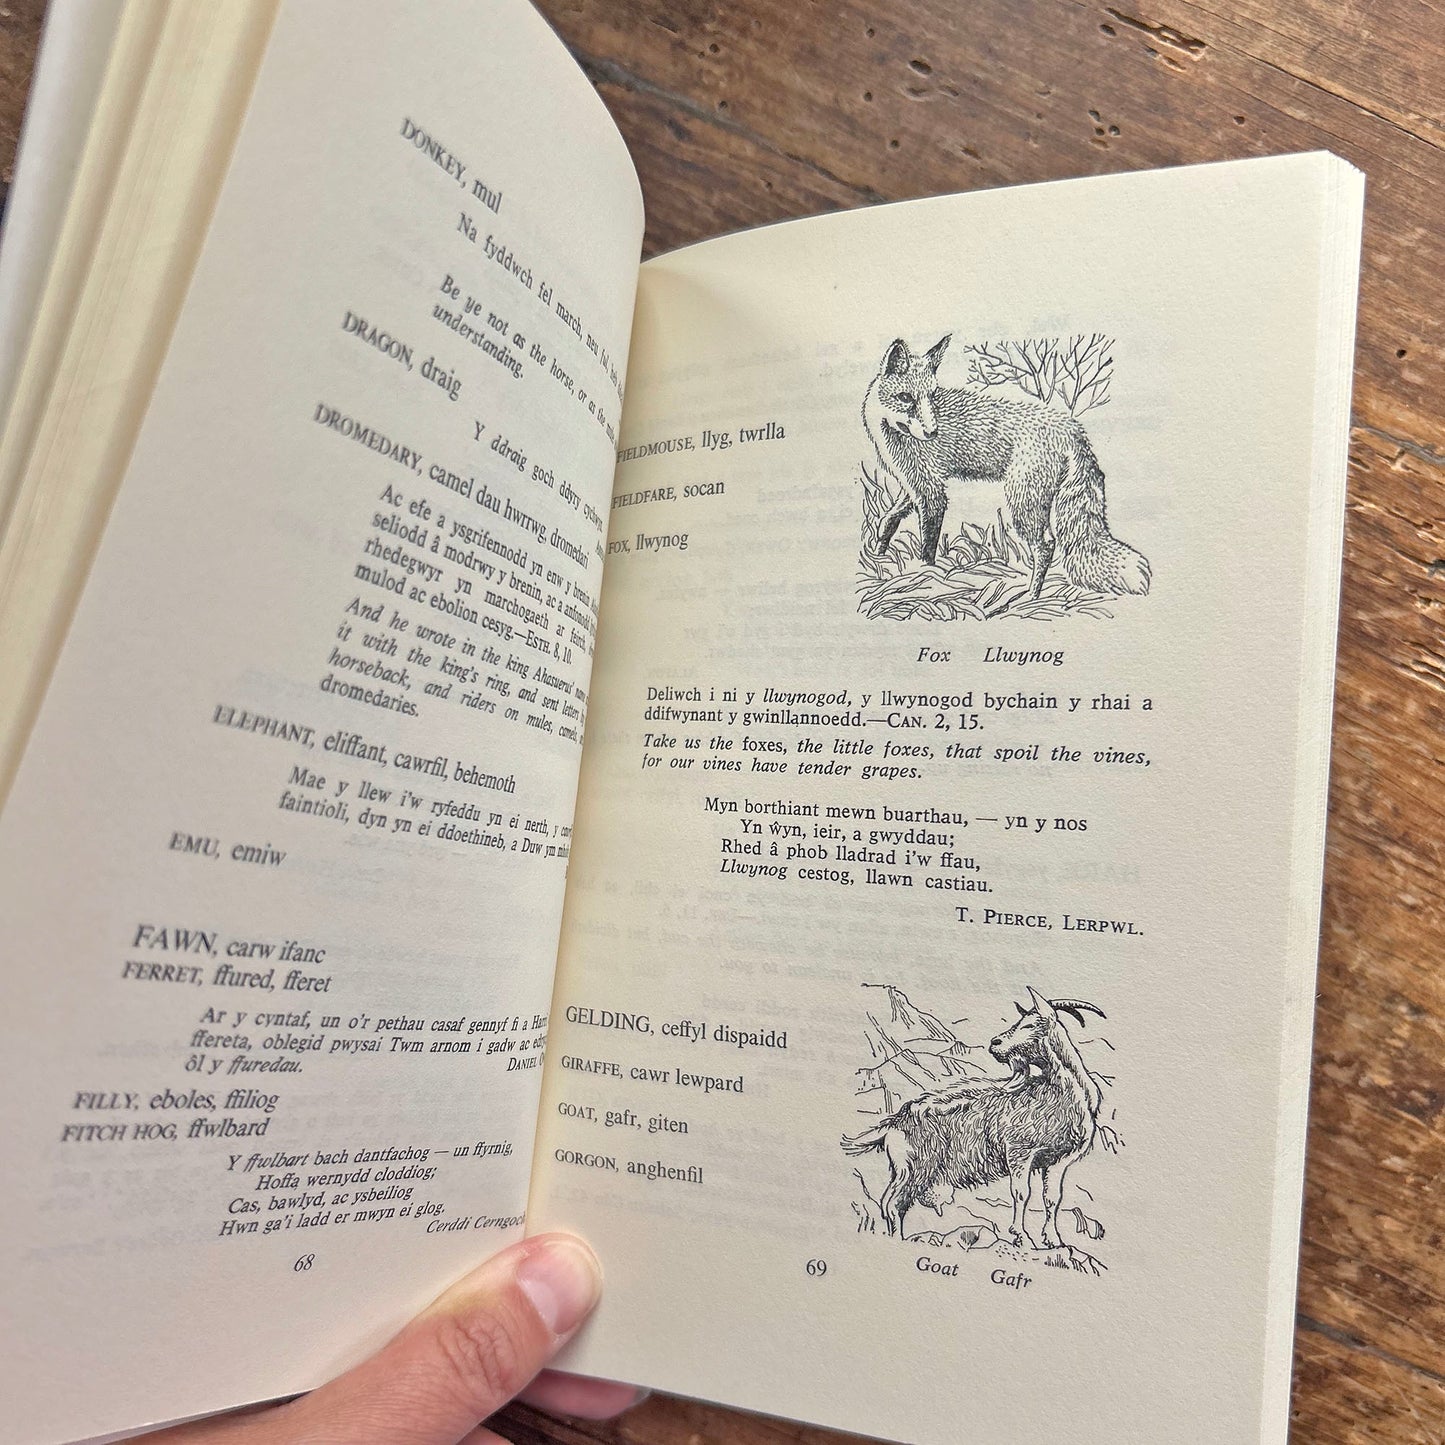 DONKEY, mul
Na fyddwch fel march, neu ful, heb
Be ye not as the horse, or as the mule
understanding.
DRAGON, draig
Y ddraig goch ddyry cychwyn
DROMEDARY, camel dau hwrrwg, dromedari
Ac efe a ysgrifennodd yn enw y brenin
seliodd â modrwy y brenin, ac a anfonodd
rhedegwyr yn marchogaeth ar feirch,
mulod ac ebolion cesyg.—ESTH. 8, 10.
And he wrote in the king Ahasuerus' name
it with the king's ring, and sent letters
horseback, and riders on mules, camels,
dromedaries.
ELEPHANT, eliffant, cawrfil, behemoth
Mae y llew i'w ryfeddu yn ei nerth, y
faintioli, dyn yn ei ddoethineb, a Duw ym
EMU, emiw
FAWN, carw ifanc
FERRET, ffured, fferet
Ar y cyntaf, un o'r pethau casaf gennyf fi a
ffereta, oblegid pwysai Twm arnom i gadw ac
ôl y ffuredau.
DANIEL
FILLY, eboles, ffiliog
FITCH HOG, ffwlbard
Y ffwlbart bach dantfachog — un ffyrnig,
Hoffa wernydd cloddiog;
Cas, bawlyd, ac ysbeiliog
Hwn ga'i ladd er mwyn ei glog.
Cerddi Cerngoch
68
FIELDMOUSE, llyg, twrlla
FIELDFARE, socan
FOX, llwynog
Fox Llwynog
Deliwch i ni y llwynogod, y llwynogod bychain y rhai a
ddifwynant y gwinllannoedd.—CAN. 2, 15.
Take us the foxes, the little foxes, that spoil the vines,
for our vines have tender grapes.
Myn borthiant mewn buarthau, — yn y nos
Yn ŵyn, ieir, a gwyddau;
Rhed â phob lladrad i'w ffau,
Llwynog cestog, llawn castiau.
T. PIERCE, LERPWL.
GELDING, ceffyl dispaidd
GIRAFFE, cawr lewpard
GOAT, gafr, giten
GORGON, anghenfil
Goat Gafr
69